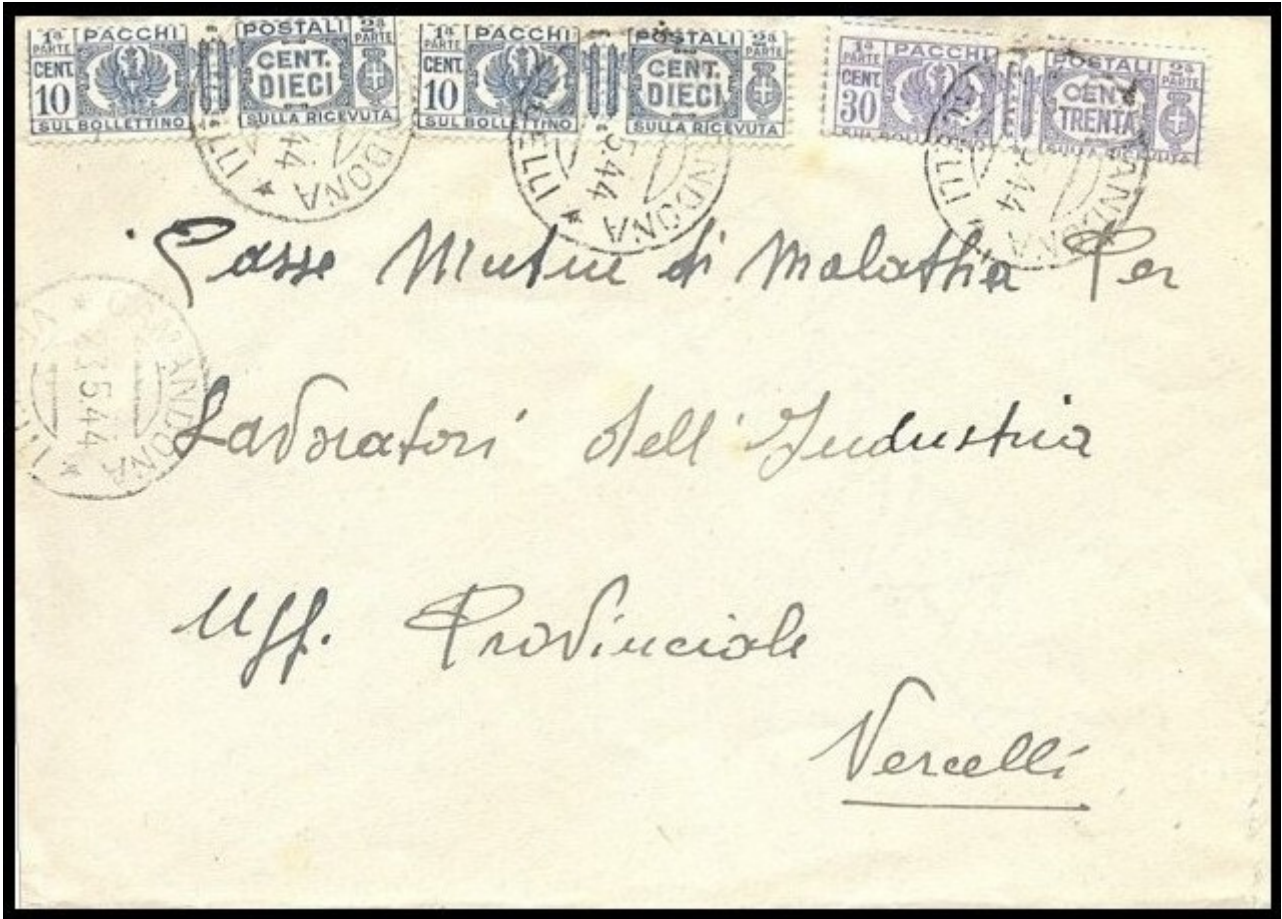 1ª PARTE PACCHI POSTALI 2ª PARTE
CENT. 10 CENT. DIECI
SUL BOLLETTINO SULLA RICEVUTA
1ª PARTE PACCHI POSTALI 2ª PARTE
CENT. 10 CENT. DIECI
SUL BOLLETTINO SULLA RICEVUTA
1ª PARTE PACCHI POSTALI 2ª PARTE
CENT. 30 CENT. TRENTA
SUL BOLLETTINO SULLA RICEVUTA
Casse Mutue di Malattia Per
Lavoratori dell'Industria
Uff. Provinciale
Vercelli
CAMANDONA
5.44